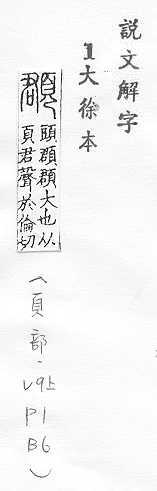 說文解字
1大徐本
頵
頭頵頵大也从
頁君聲於倫切
(頁部.
V9上
P1
B6)